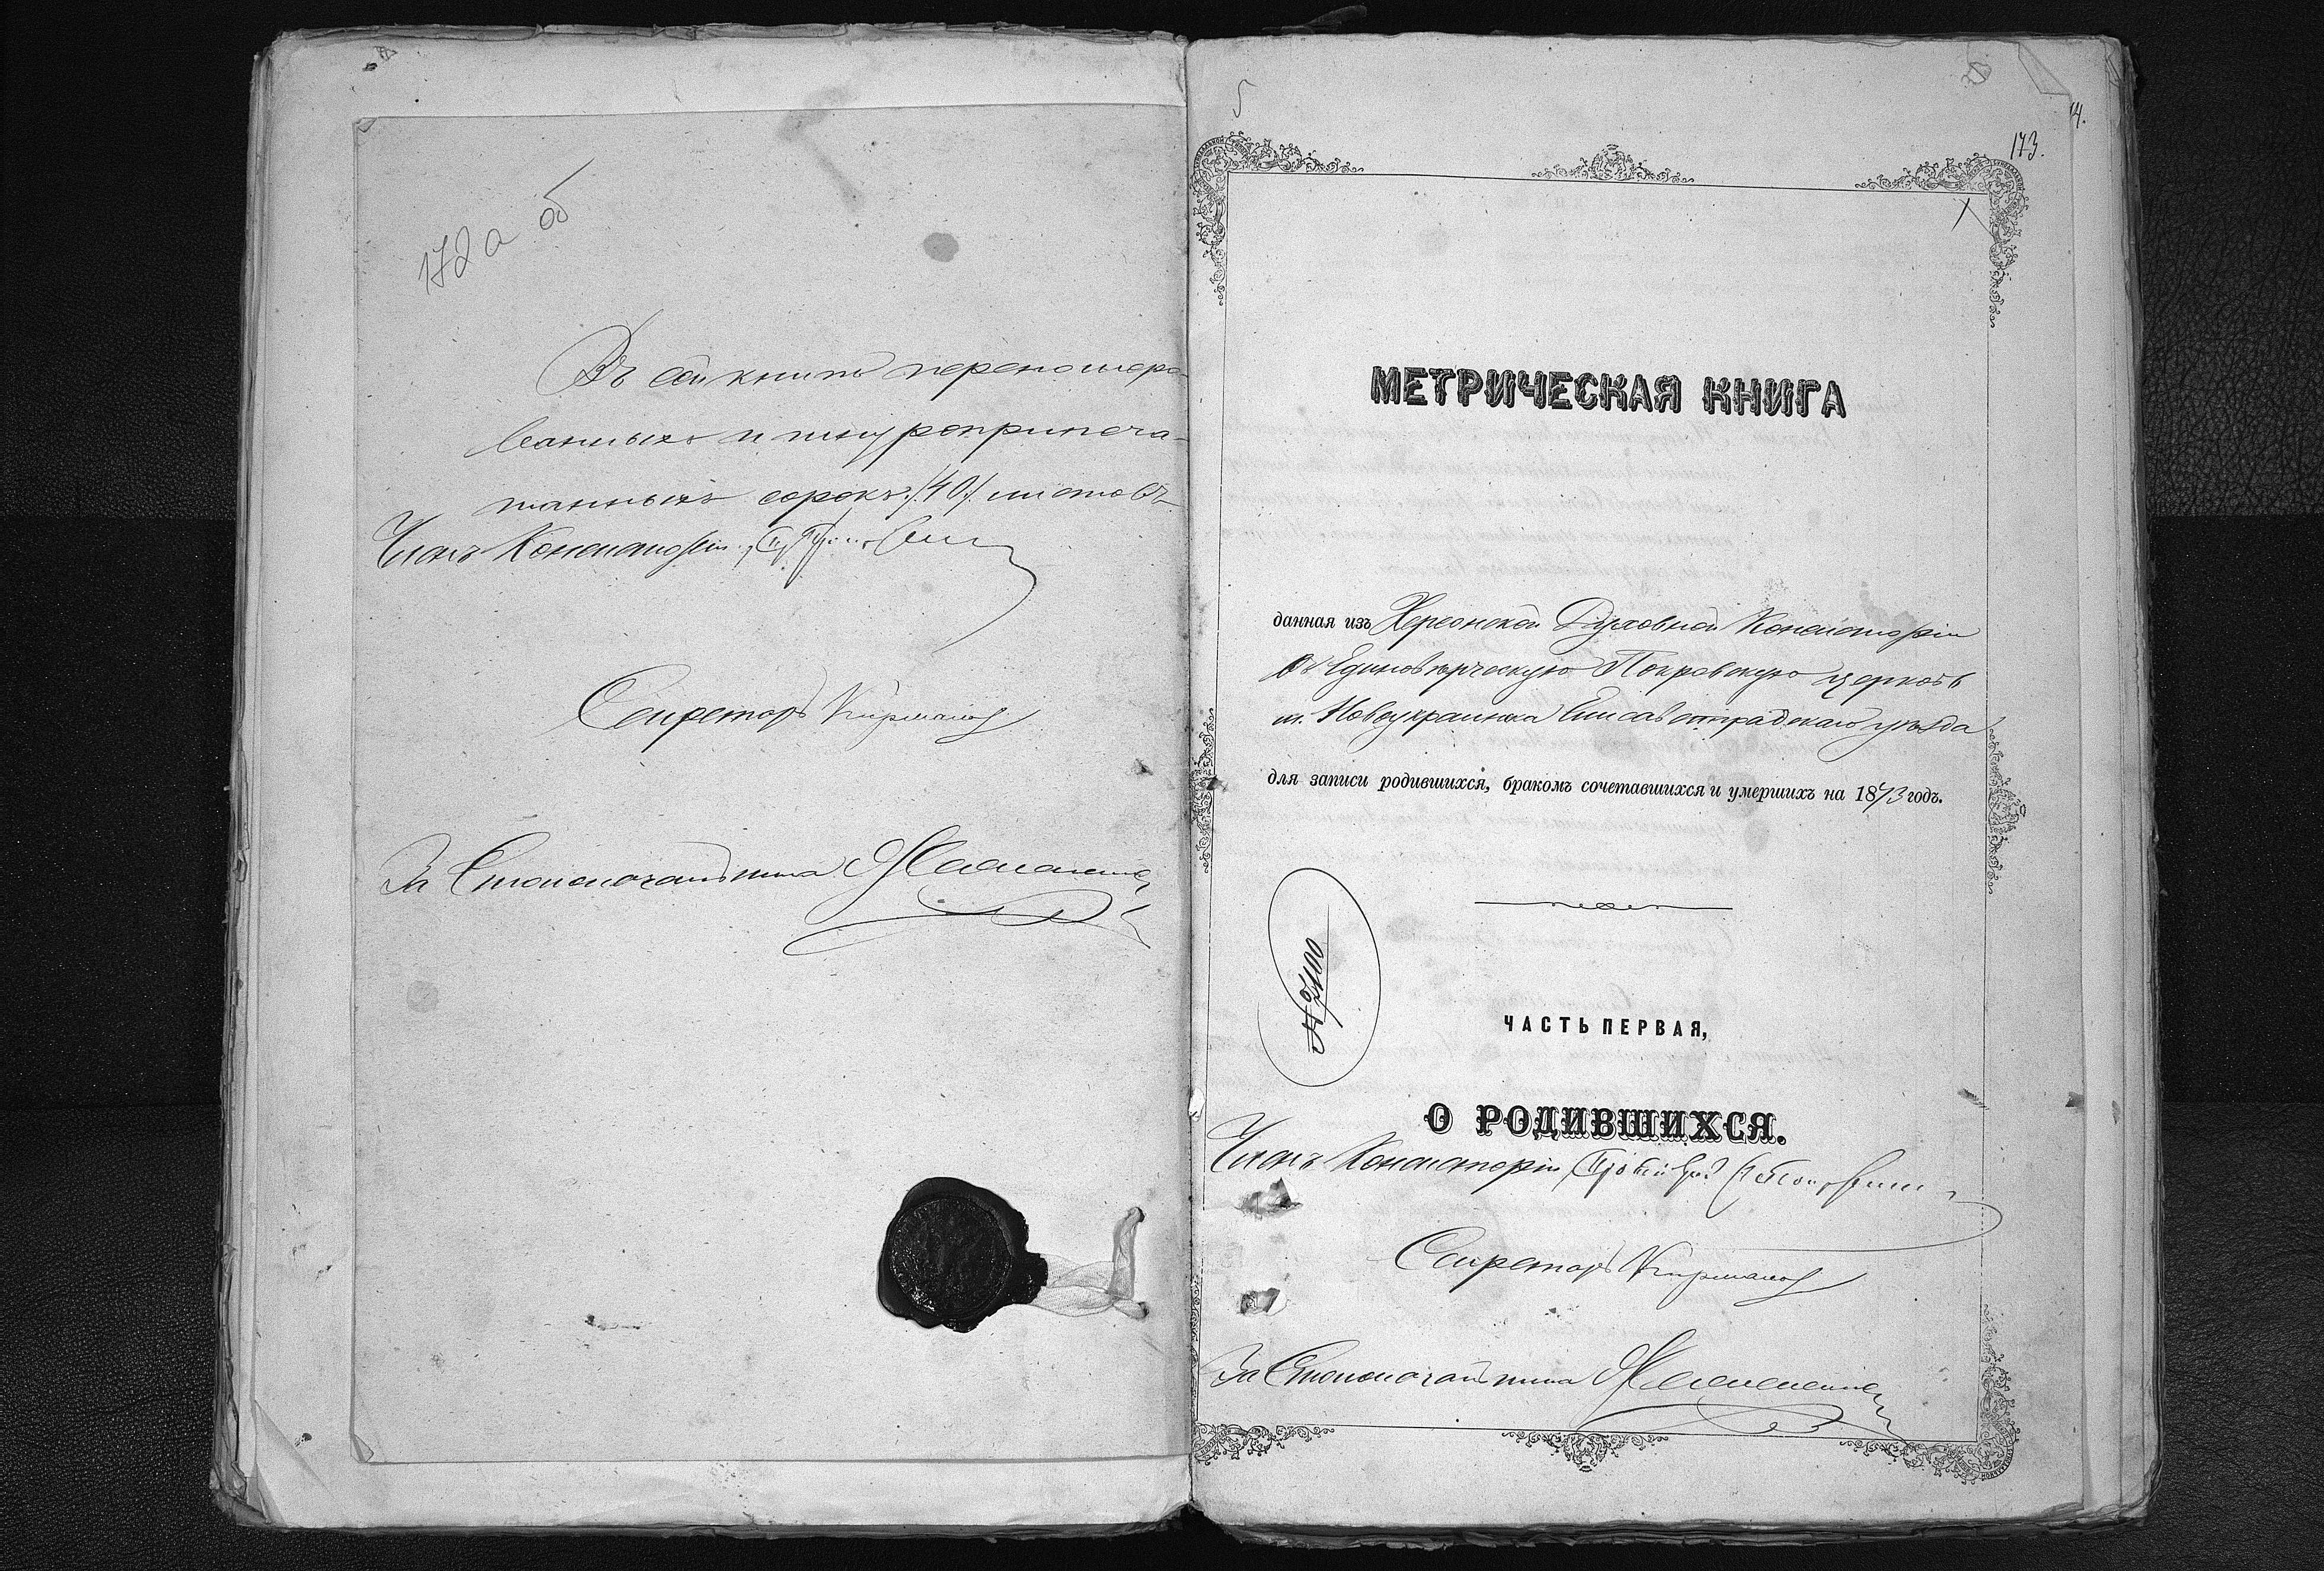 172а об
Въ сей книге перенумеро-
ванныхъ и шнуроприпеча-
танныхъ сорокъ /40/ листовъ
Членъ Консисторіи,
Секретарь
За Столоначальника
5
14.
173.
1
МЕТРИЧЕСКАЯ КНИГА
данная изъ Херсонской Духовной Консисторіи
въ Единовѣрческую Покровскую церковь
м. Новоукраинка Елисаветградскаго уѣзда
для записи родившихся, бракомъ сочетавшихся и умершихъ на 1873 годъ.
ЧАСТЬ ПЕРВАЯ,
О РОДИВШИХСЯ.
Членъ Консисторіи, Протоіерей
Секретарь
За Столоначальника